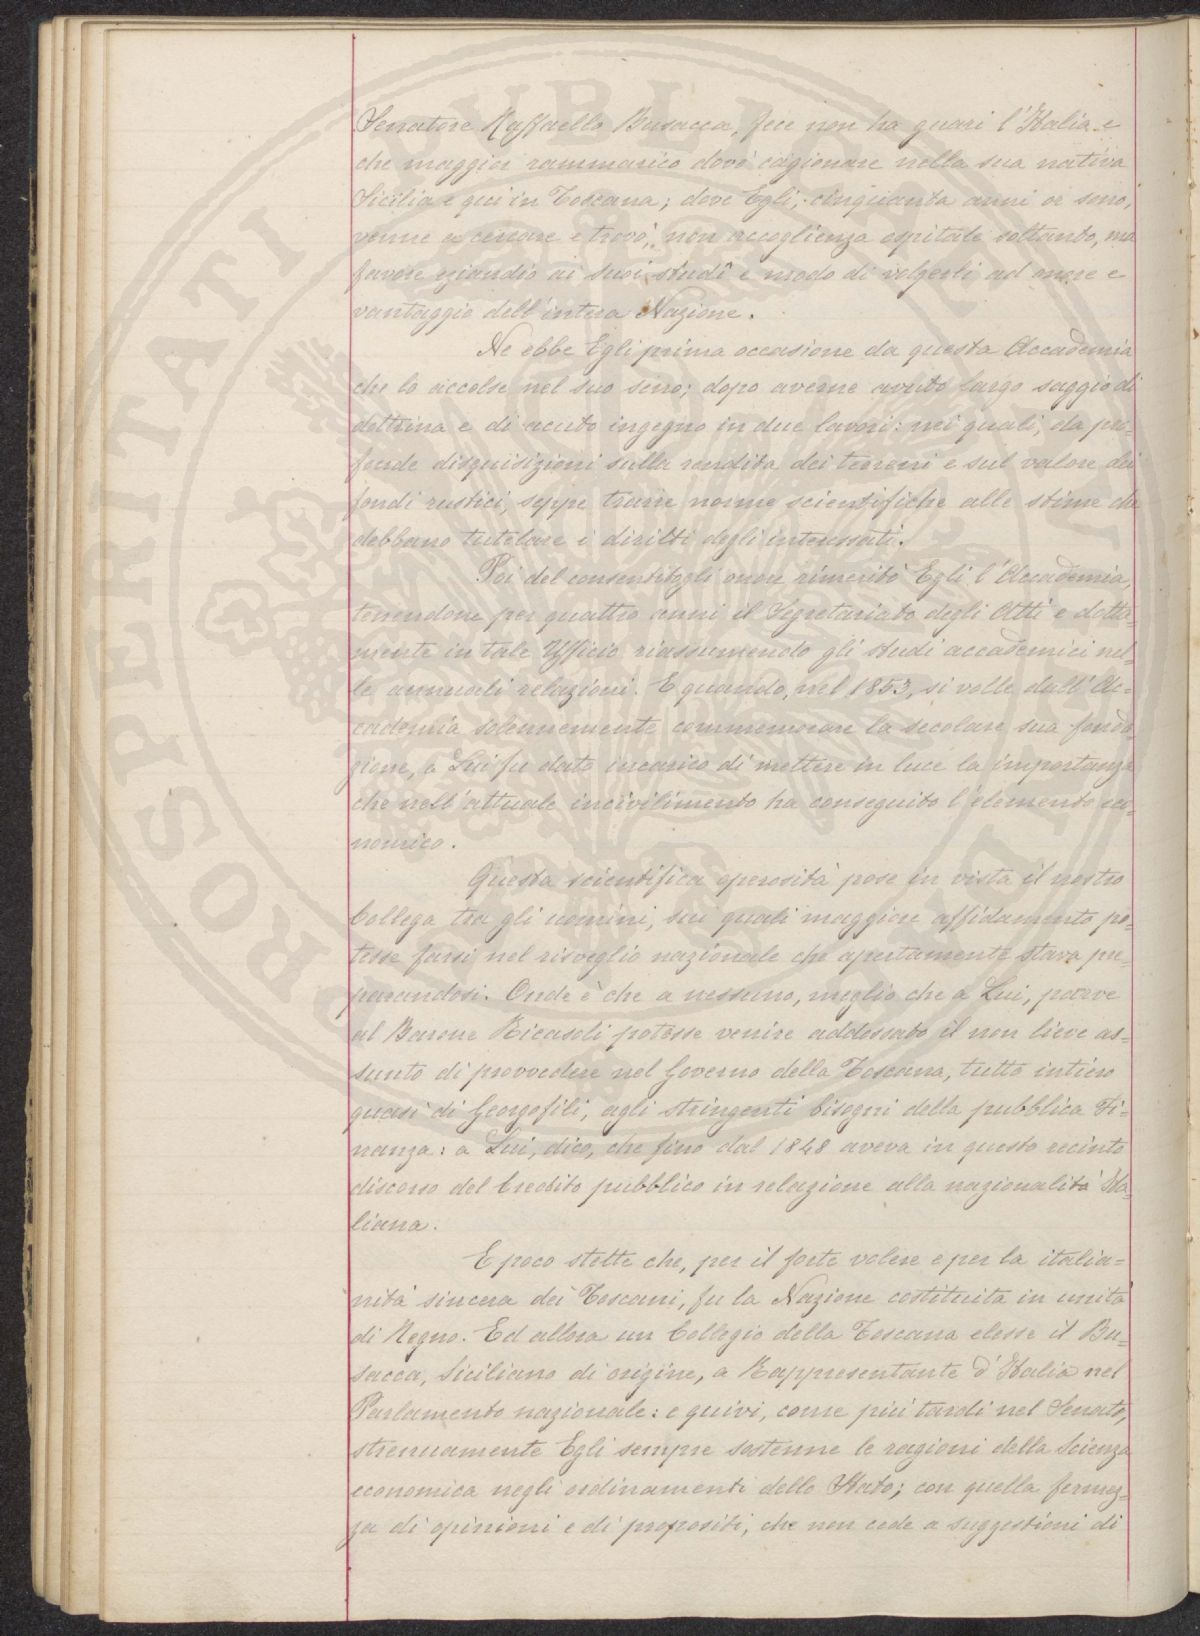 Senatore Raffaello Busacca, fece non ha guari l'Italia e
che maggior rammarico dovè cagionare nella sua nativa
Sicilia e qui in Toscana; dove Egli, cinquanta anni or sono,
venne a cercare e trovò, non accoglienza ospitale soltanto, ma
favore eziandio ai suoi studî e modo di volgerli ad onore e
vantaggio dell'intera Nazione.
Ne ebbe Egli prima occasione da questa Accademia
che lo accolse nel suo seno; dopo averne avuto largo saggio di
dottrina e di acuto ingegno in due lavori: nei quali, da pro=
fonde disquisizioni sulla rendita dei terreni e sul valore dei
fondi rustici, seppe trarre norme scientifiche alle stime che
debbano tutelare i diritti degli interessati.
Poi del consentitogli onore rimeritò Egli l'Accademia,
tenendone per quattro anni il Segretariato degli Atti e dotta=
mente in tale Ufficio riassumendo gli studi accademici nel=
le annuali relazioni. E quando, nel 1853, si volle dall'Ac=
cademia solennemente commemorare la secolare sua fonda=
zione, a Lui fu dato incarico di mettere in luce la importanza
che nell'attuale incivilimento ha conseguito l'elemento eco=
nomico.
Questa scientifica operosità pose in vista il nostro
Collega tra gli uomini, sui quali maggiore affidamento po=
tesse farsi nel risveglio nazionale che apertamente stava pre=
parandosi. Onde è che a nessuno, meglio che a Lui, parve
al Barone Ricasoli potesse venire addossato il non lieve as=
sunto di provvedere nel Governo della Toscana, tutto intiero
quasi di Georgofili, agli stringenti bisogni della pubblica Fi=
nanza: a Lui, dico, che fino dal 1848 aveva in questo recinto
discorso del Credito pubblico in relazione alla nazionalità Ita=
liana.
E poco stette che, per il forte volere e per la italia=
nità sincera dei Toscani, fu la Nazione costituita in unità
di Regno. Ed allora un Collegio della Toscana elesse il Bu=
sacca, Siciliano di origine, a Rappresentante d'Italia nel
Parlamento nazionale: e quivi, come più tardi nel Senato,
strenuamente Egli sempre sostenne le ragioni della Scienza
economica negli ordinamenti dello Stato; con quella fermez=
za di opinioni e di propositi, che non cede a suggestioni di
PROSPERITATI PUBLICAE AUGENDAE